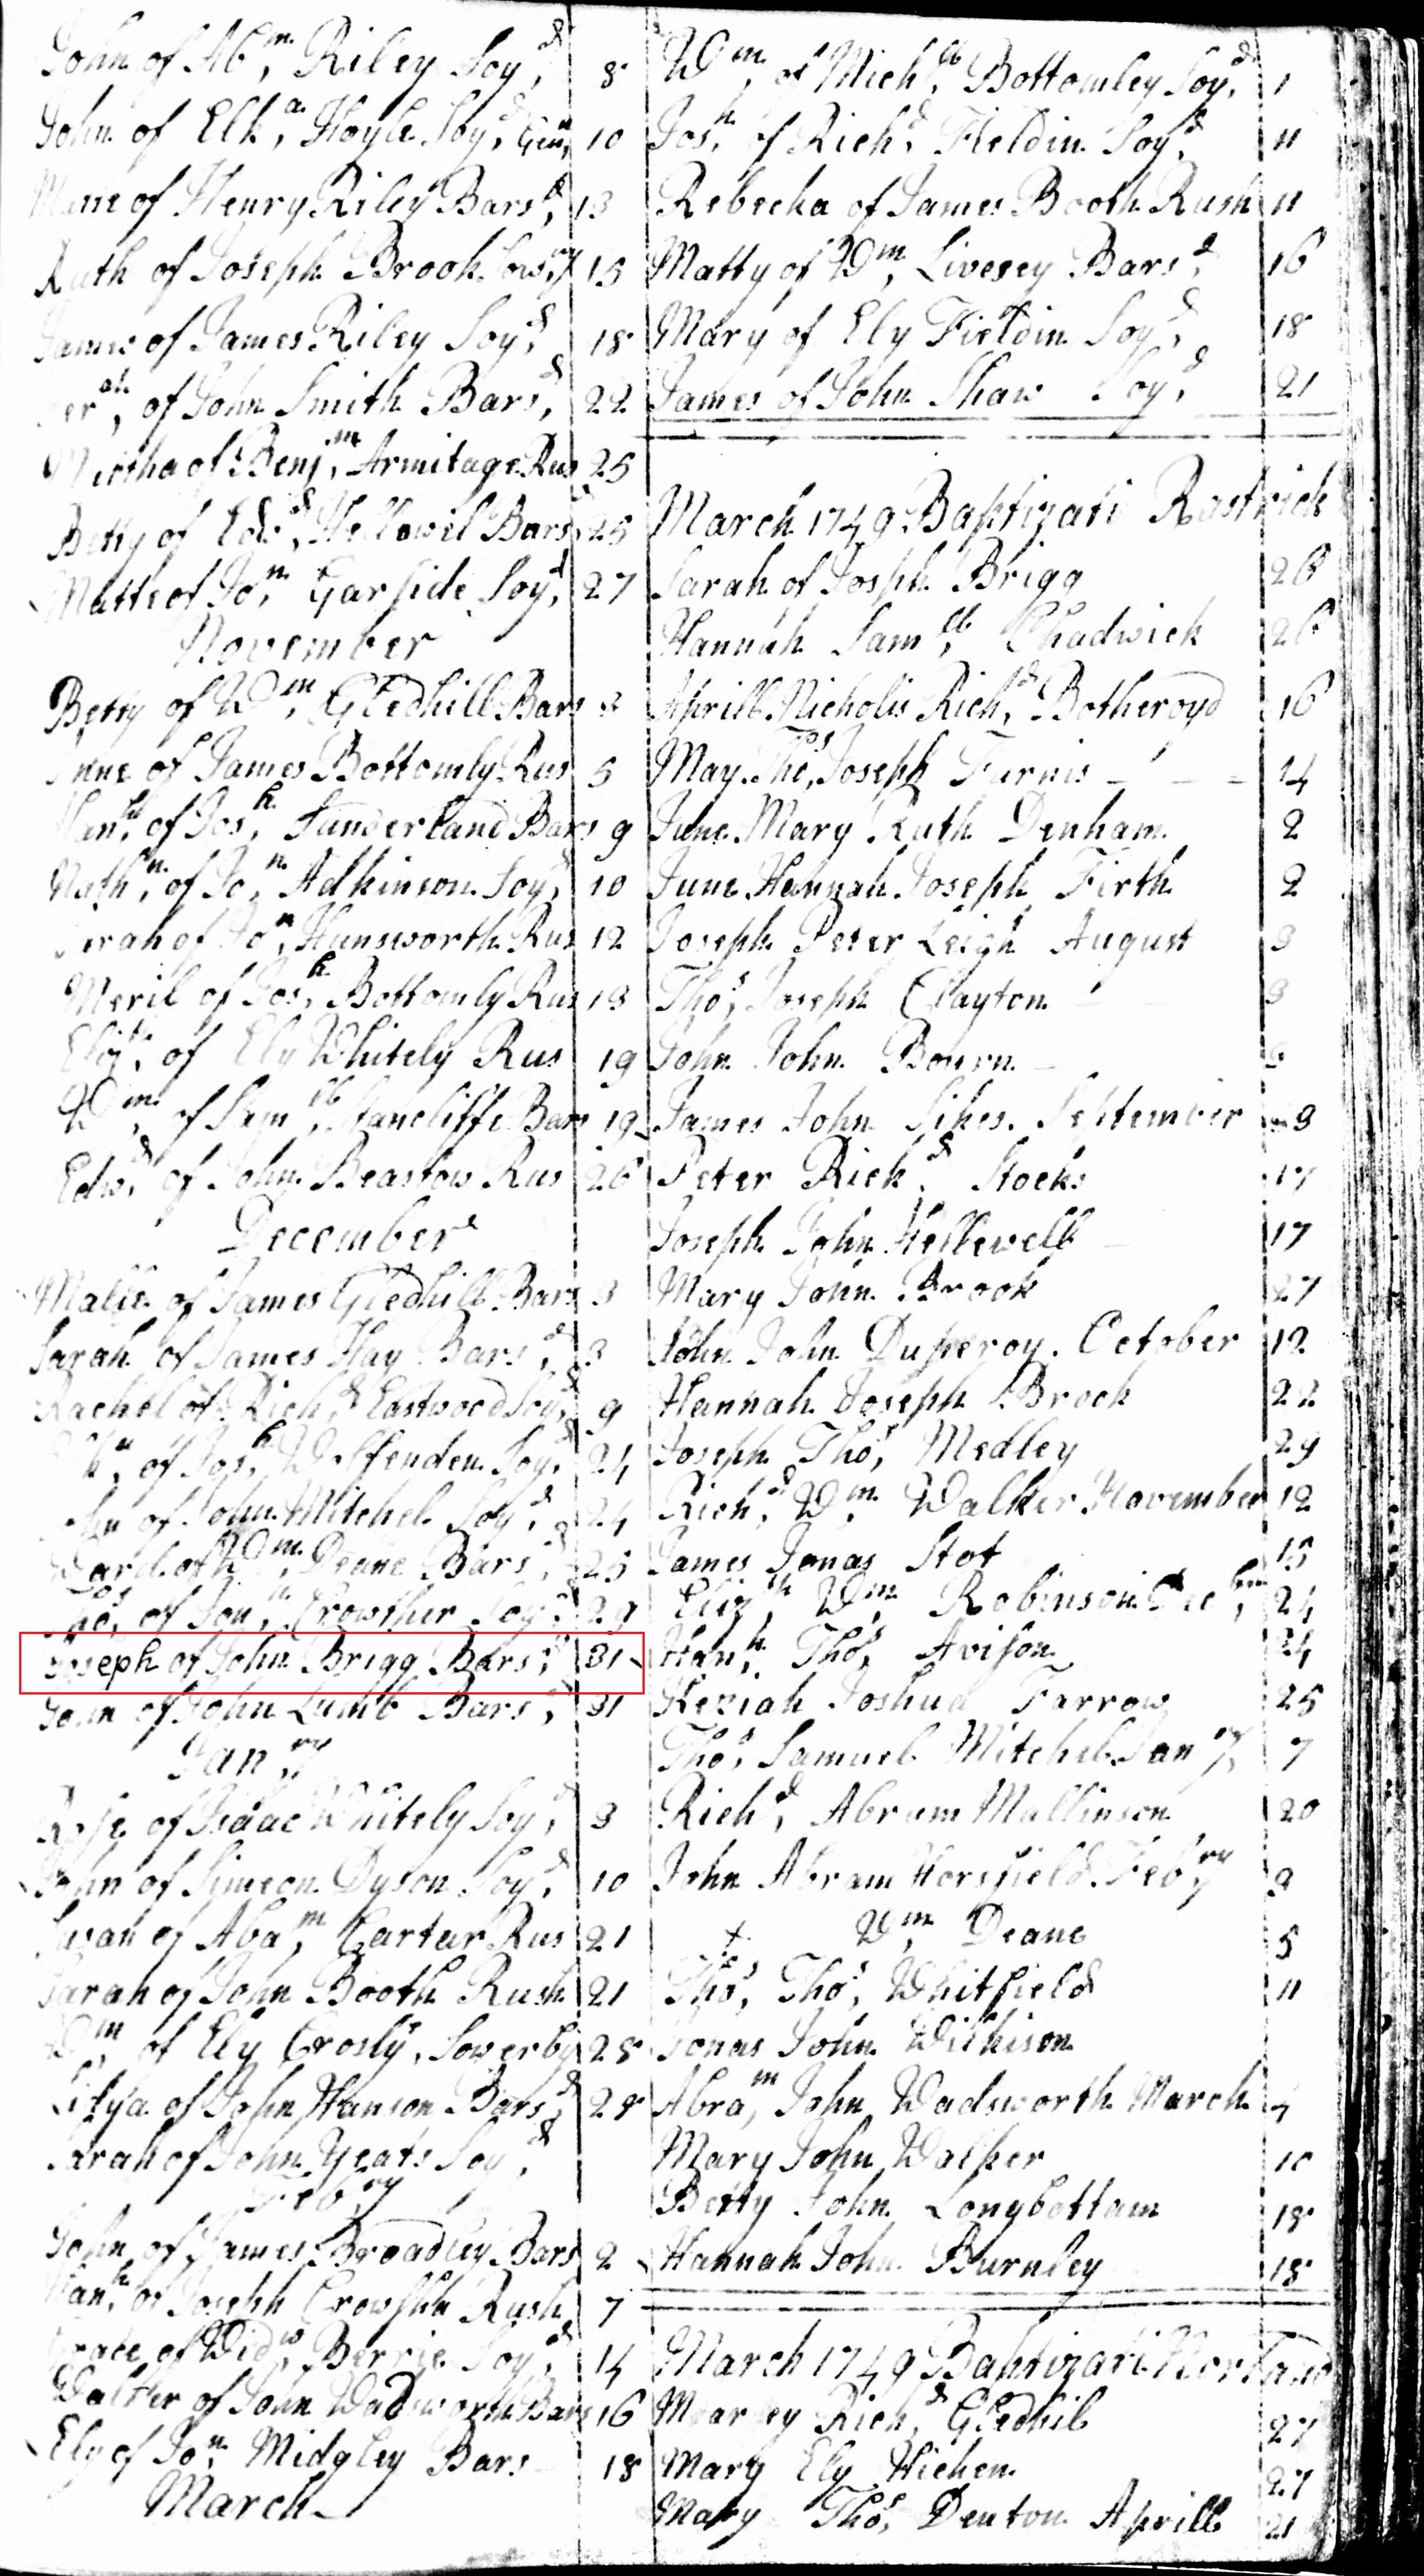 John of Abm, Riley Soyd, 8
John of Elka, Hoyle Soyd, 10
of Henry Riley Barsd, 13
Ruth of Joseph Brook 15
James of James Riley Soyd, 18
of John Smith Barsd, 22
Martha of Benjm, Armitage Rus 25
Betty of Edwd, Hellowil Bars 25
Matte of Jon, Garside Soyd, 27
November
Betty of Wm, Gledhill Bars 3
Anne of James Bottomly Rus 5
Hanh, of Josh, Sunderland Bars 9
Nathn, of Jon, Adkinson Soyd, 10
Sarah of Jon, Hunsworth Rus 12
Meril of Josh, Bottomly Rus 13
Elizth, of Ely Whitely Rus 19
Wm, of Samll, Stancliffe Bars 19
Edwd, of John Beastow Rus 26
December
Malle of James Gledhill Bars 3
Sarah of James Hay Barsd, 3
Rachel of Richd, Eastwood Soyd, 9
of Josh, Wolfenden Soyd, 24
John of John Mitchel Soyd, 24
of Wm, Deane Barsd, 25
Thos, of Jonn, Crowther Soyd, 29
Joseph of John Brigg Barsd, 31
John of John Lumb Barsd, 31
Janry
Rose of Isaac Whitely Soyd, 3
John of Simeon Dyson Soyd, 10
Susan of Abam, Carter Rus 21
Sarah of John Booth Rush 21
Wm, of Ely Crosly, Sowerby 28
of John Hanson Barsd, 28
Sarah of John Yeats Soyd,
Febry
John of James Broadley Bars 2
Hanh, of Joseph Rush 7
Grace of Widw, Berrie Soyd, 14
Walker of John Wadsworth Bars 16
Ely of Jon, Midgley Bars 18
March
Wm, of Michll, Bottomley Soyd, 1
Josh, of Richd, Fieldin Soyd, 11
Rebecka of James Booth Rush 11
Matty of Wm, Livesey Barsd, 16
Mary of Ely Fieldin Soyd, 18
James of John Shaw Soyd, 21
March 1749 Baptizati Rastrick
Sarah of Josph Brigg 26
Hannah Samll, Chadwick 26
Aprill Nicholis Richd, Botheroyd 16
May. Thos, Joseph Furnis 14
June Mary Ruth Denham 2
June Hannah Joseph Firth 2
Joseph Peter Leigh August 3
Thos, Joseph Clayton 3
John John Bourn
James John Sikes. September 3
Peter Richd, Stocks 17
Joseph John Hellewell 17
Mary John Brook 27
John John Duperoy. October 12
Hannah Joseph Brook 22
Joseph Thos, Medley 29
Richd, Wm, Walker November 12
James Jonas Stot 15
Elizth, Wm, Robinson Decbem, 24
Hanh, Thos, Avison 24
Keziah Joshua Farrow 25
Thos, Samuel Mitchel Jany, 7
Richd, Abram Mallinson 20
John Abram Horsfield Febry 9
+ Wm, Deane 5
Thos, Thos, Whitfield 11
Jonas John Wilkison
Abram, John Wadsworth March 4
Mary John Walker 10
Betty John Longbottam 18
Hannah John Burnley 18
March 1749 Baptizati Norland
Richd, Gledhil 27
Mary Ely Hichen 27
Mary Thos, Denton Aprill 21